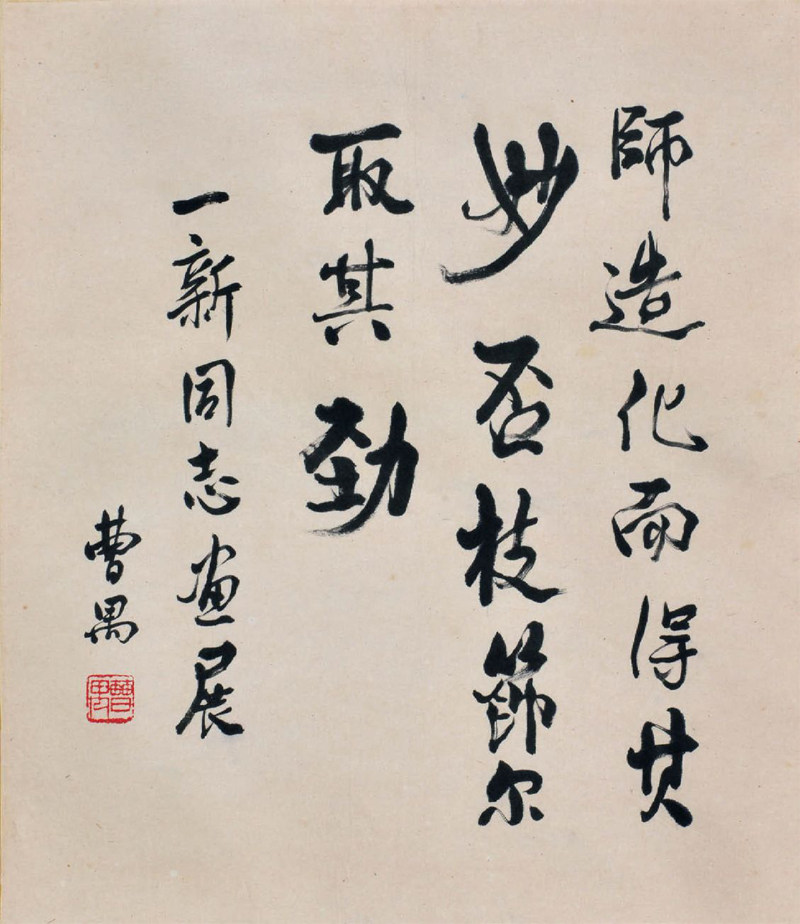 師造化而得其
妙否枝節尔
取其劲
一新同志画展
曹禺
曹禺